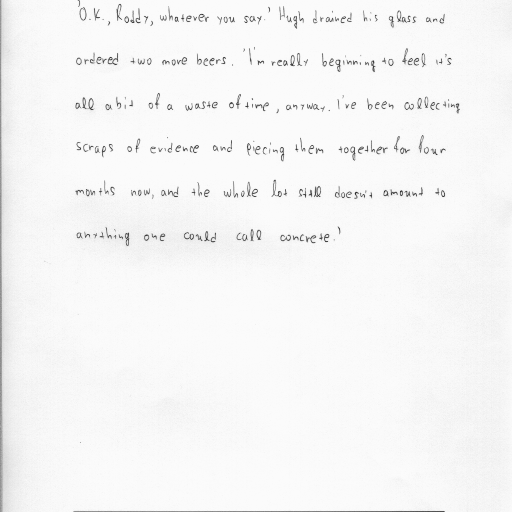 'O.K., Roddy, whatever you say.' Hugh drained his glass and
ordered two more beers. 'I'm really beginning to feel it's
all a bit of a waste of time, anyway. I've been collecting
scraps of evidence and piecing them together for four
months now, and the whole lot still doesn't amount to
anything one could call concrete.'